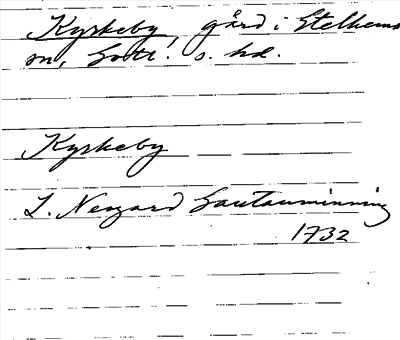 Kyrkeby, gård i Stelkums
sn, Gotl. s. hd.
Kyrkeby
L. Nergård Gautauminning
1732